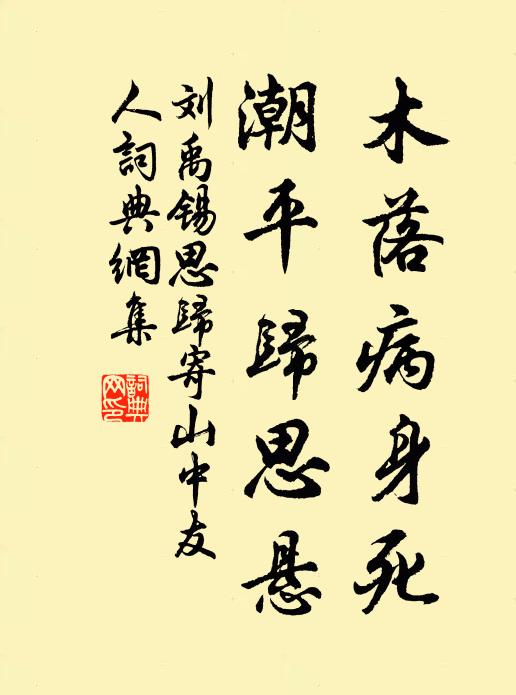 木落病身死
潮平歸思悬
刘禹锡思歸寄山中友
人詞典網集
詞典
网印